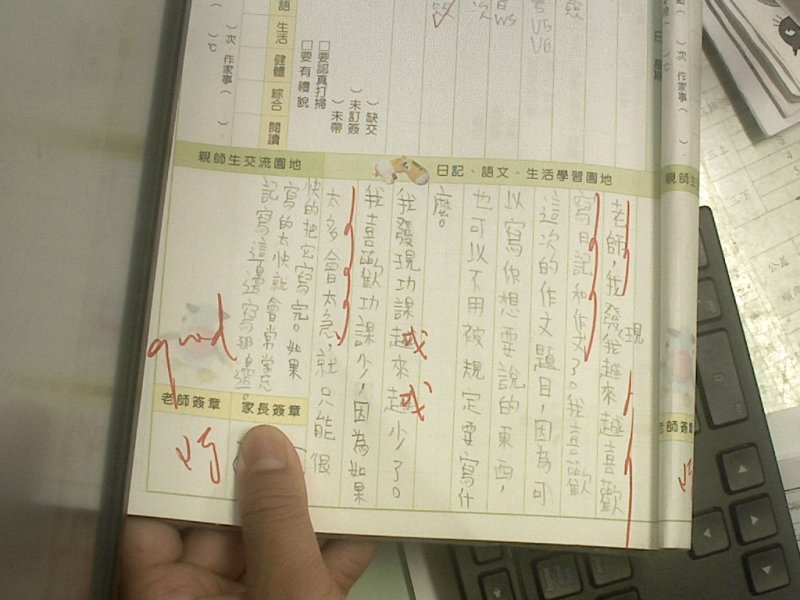 語
生活
健體
綜合
閱讀
)次 作家事(
)七
□要認真打掃
□要有禮貌
)缺交
)未訂簽
)未帶
次
V5
V6
日記、語文、生活學習園地
親師生交流園地
老師,我發現我越來越喜歡
寫日記和作文了。我喜歡
這次的作文題目,因為可
以寫你想要說的東西,
也可以不用被規定要寫什
麼。
我發現功課越來越少了。
我喜歡功課少,因為如果
太多會太急,就只能很
快的把它寫完。如果
寫的太快就會常常忘
記寫這邊還寫那邊。
good
家長簽章
老師簽章
親師生
老師簽章